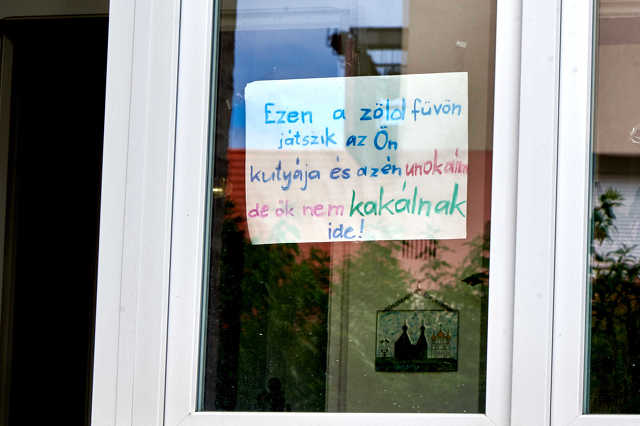 Ezen a zöld füvön
játszik az Ön
kutyája és azén unokáim
de ők nem kakálnak
ide!